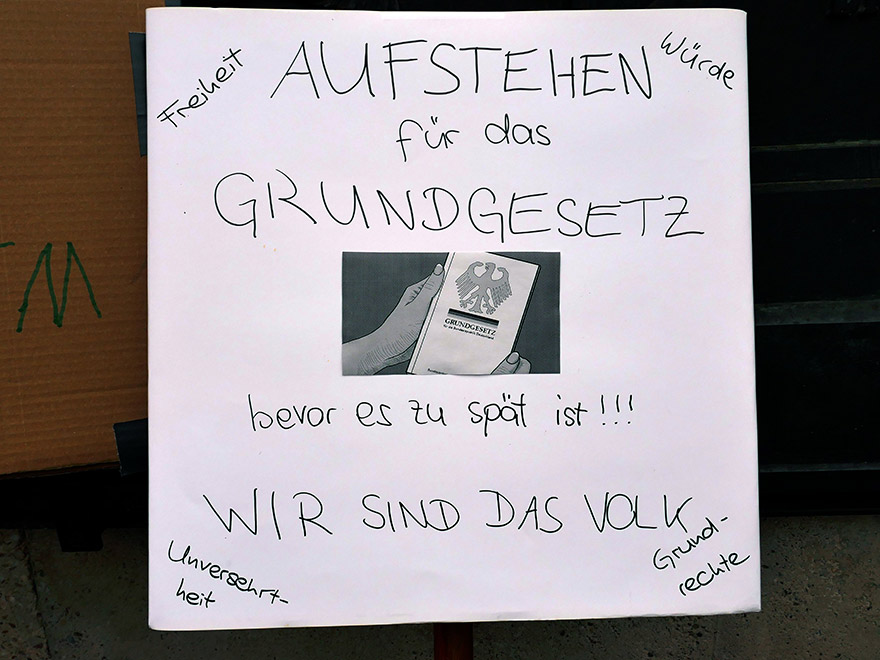 Freiheit
AUFSTEHEN
Würde
für das
GRUNDGESETZ
GRUNDGESETZ
bevor es zu spät ist!!!
WIR SIND DAS VOLK
Unversehrt-
heit
Grund-
rechte